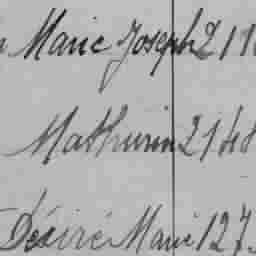 Marie Joseph 211
Mathurin 2148
Désiré Marie 127